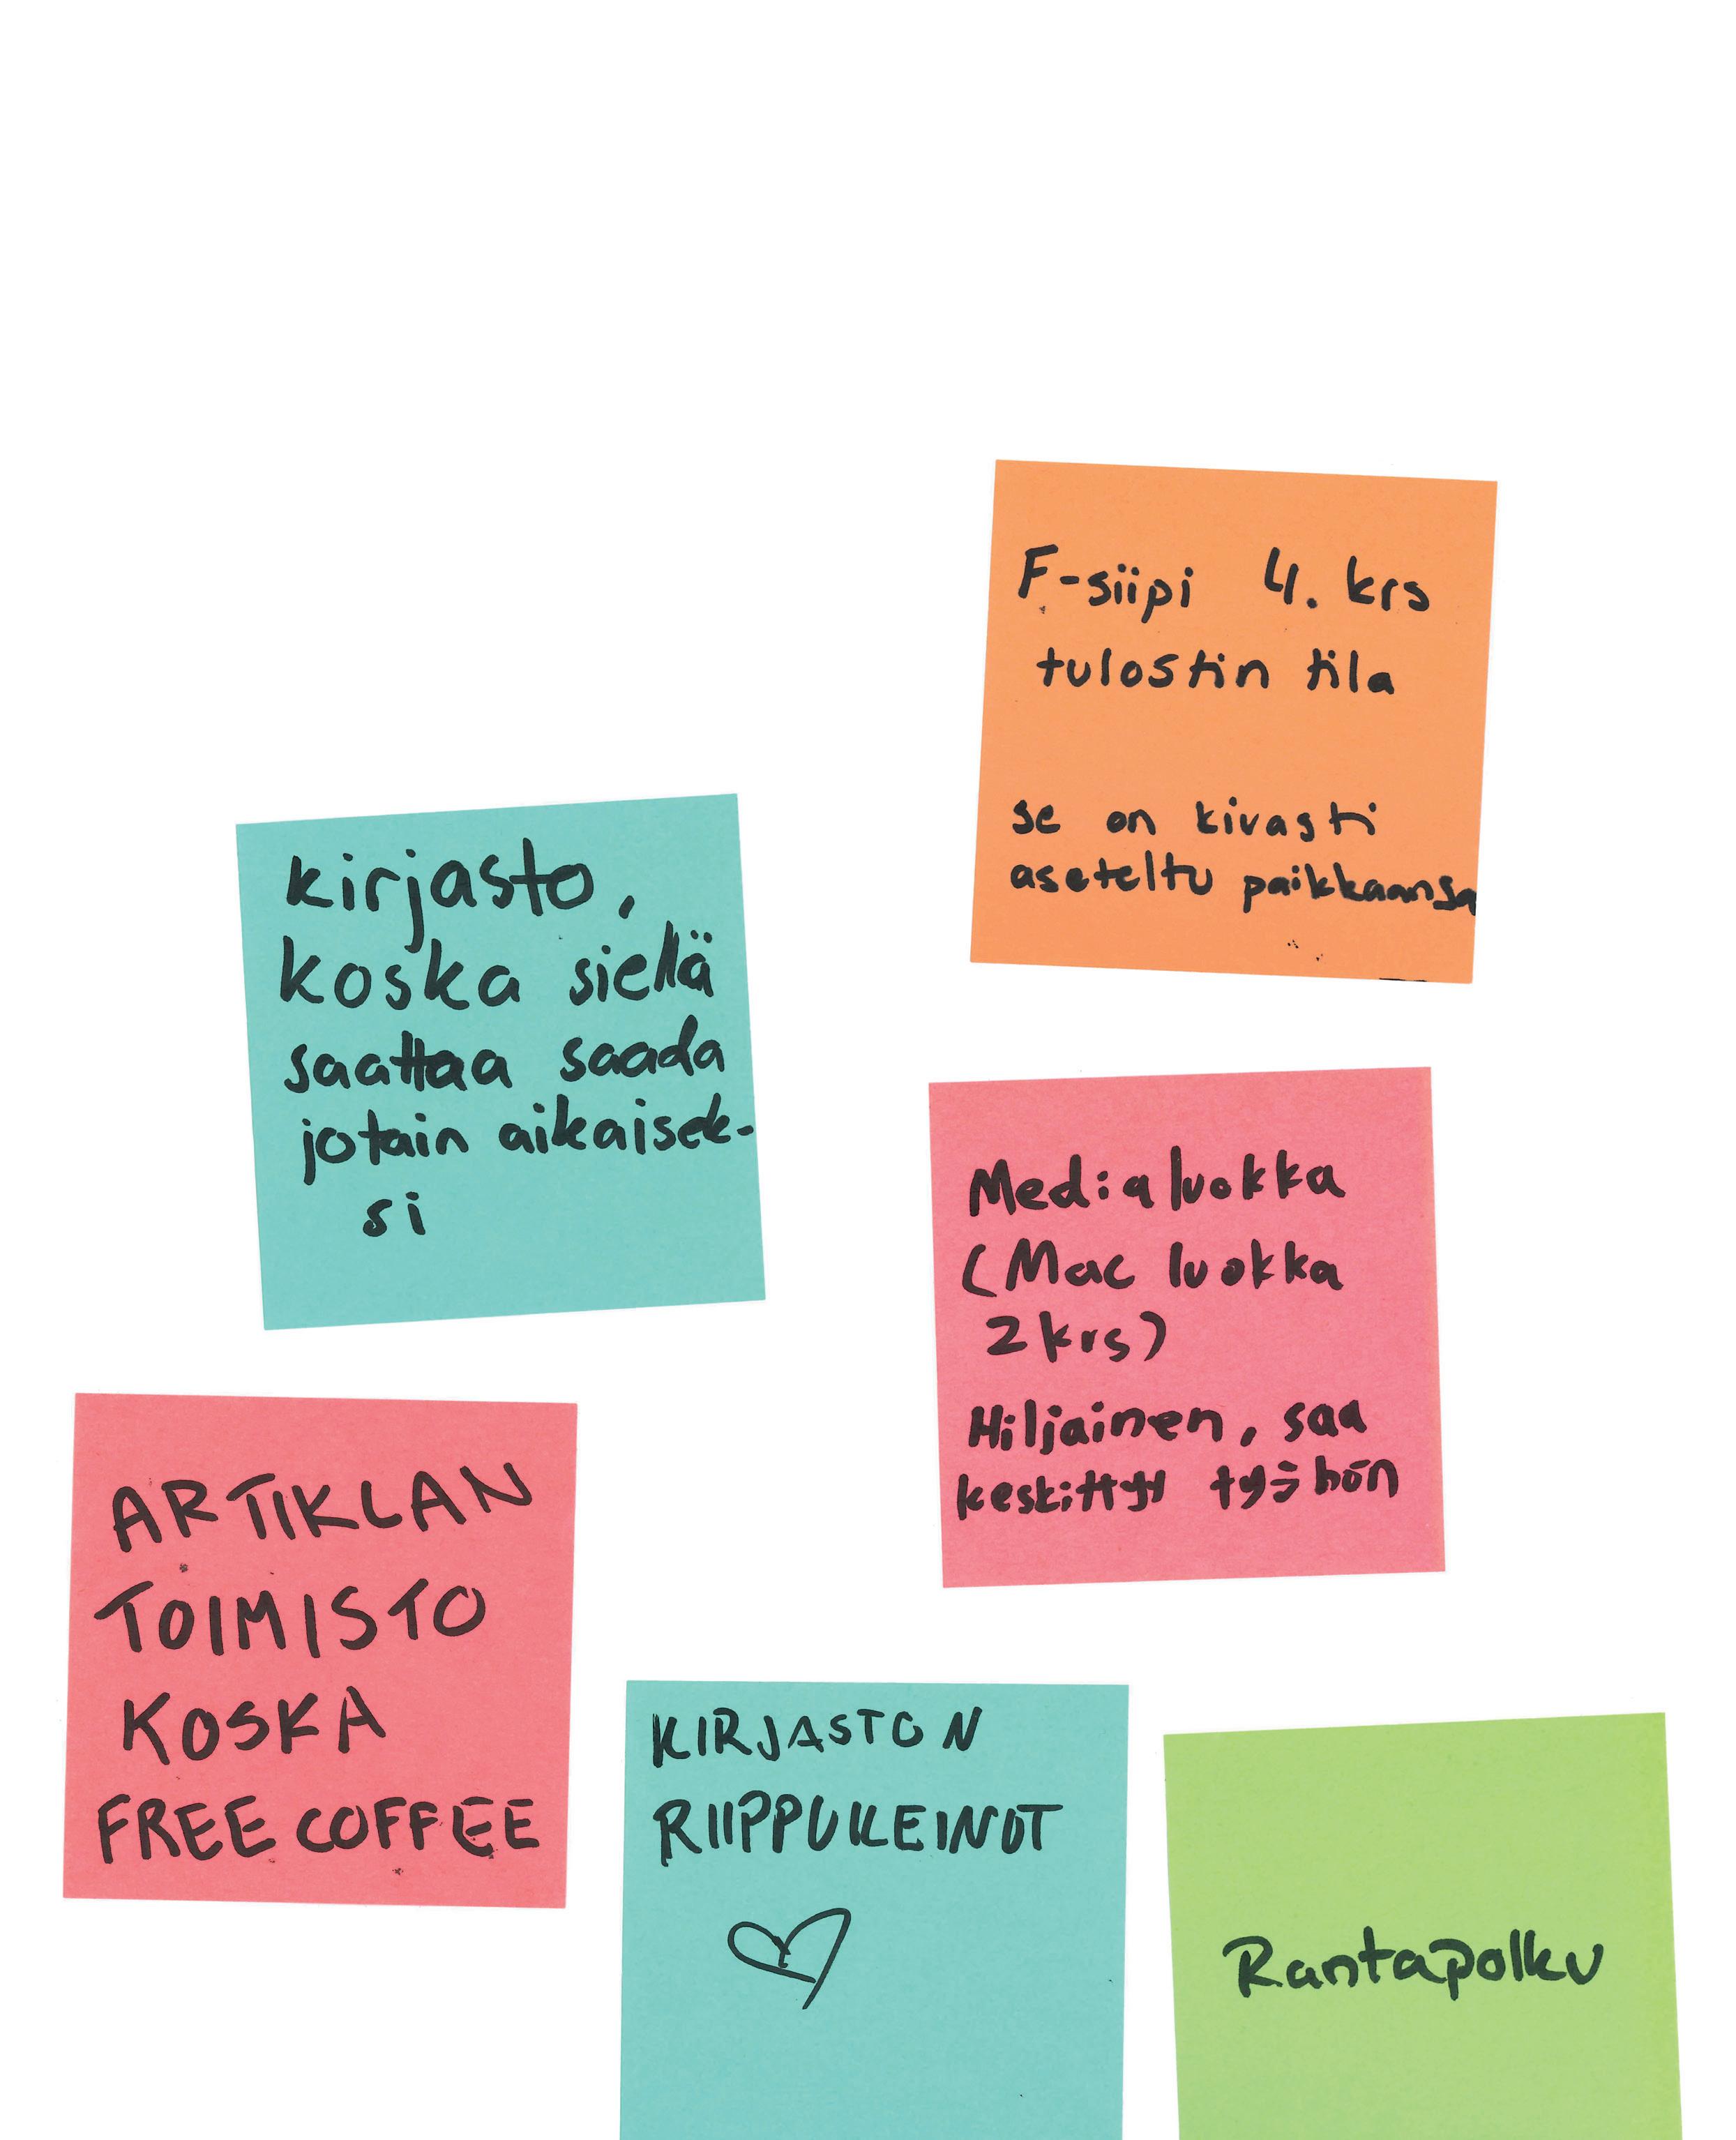 F-siipi 4. krs
tulostin tila
se on kivasti
aseteltu paikkaansa
kirjasto,
koska siellä
saattaa saada
jotain aikaisek-
si
Medialuokka
(Mac luokka
2krs)
Hiljainen, saa
keskittyy työhön
ARTIKLAN
TOIMISTO
KOSKA
FREE COFFEE
KIRJASTON
RIIPPUKEINUT
Rantapolku